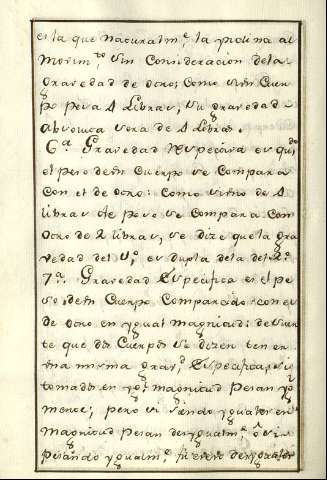 es la que naturalm.te la inclina al
movim.to sin Consideracion dela
Gravedad de otros; Como si un Cuer
po pesa 4 Libras, su gravedad
absoluta sera de 4 Libras.
6.a Gravedad Respectiva es qdo
el peso de un Cuerpo se Compara
con el de otro: Como si uno de 4
libras de peso se Compara Con
otro de 2 libras, se dize que la gra
vedad del 1.o es dupla dela del 2.o
7.a Gravedad Especifica es el pe
so de un Cuerpo Comparado con el
de otro en ygual magnitud: de suer
te que dos Cuerpos se dizen ten er
una misma grav.d Especifica, si
tomados en yg.l magnitud pesan yg.
mente; pero si siendo yguales en
magnitud pesan desygualm.te ô si
pesando ygualm.te fueren desyguales